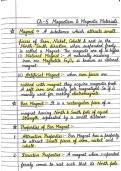 Ch-5. Magnetism & Magnetic Materials
Magnet → A substance which attracts small
pieces of Iron, Nickel, Cobalt & rest in the
North South direction when suspended freely
is called a Magnet. The magnets are of 2 types
(i) Natural Magnet :- A naturally occuring
iron ore Magnetite
magnet.
(ii) Artificial Magnet :- when iron pieces are
rubbed with magnet they acquire magnetism.
A soft iron and easily get magnetised by it
mainly used for making electromagnets.
Bar Magnet :- It is a rectangular piece of a
magnet having North & South pole of equal
strength separated by a small distance.
Properties of Bar Magnet -
Attractive Properties - Bar Magnet has a property
to attract small pieces of iron, nickel and
cobalt.
Directive Properties - A magnet when suspended
freely comes to rest such that its North Pole